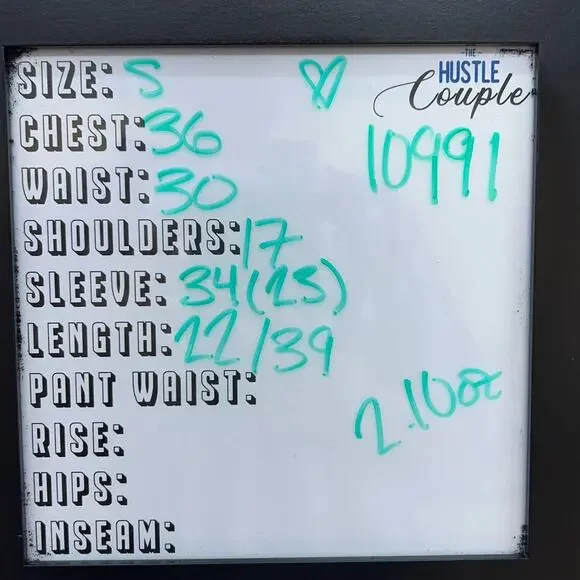 THE
HUSTLE
Couple
SIZE: S
CHEST: 36
10991
WAIST: 30
SHOULDERS: 17
SLEEVE: 34 (25)
LENGTH: 22/39
PANT WAIST:
2.10oz
RISE:
HIPS:
INSEAM: